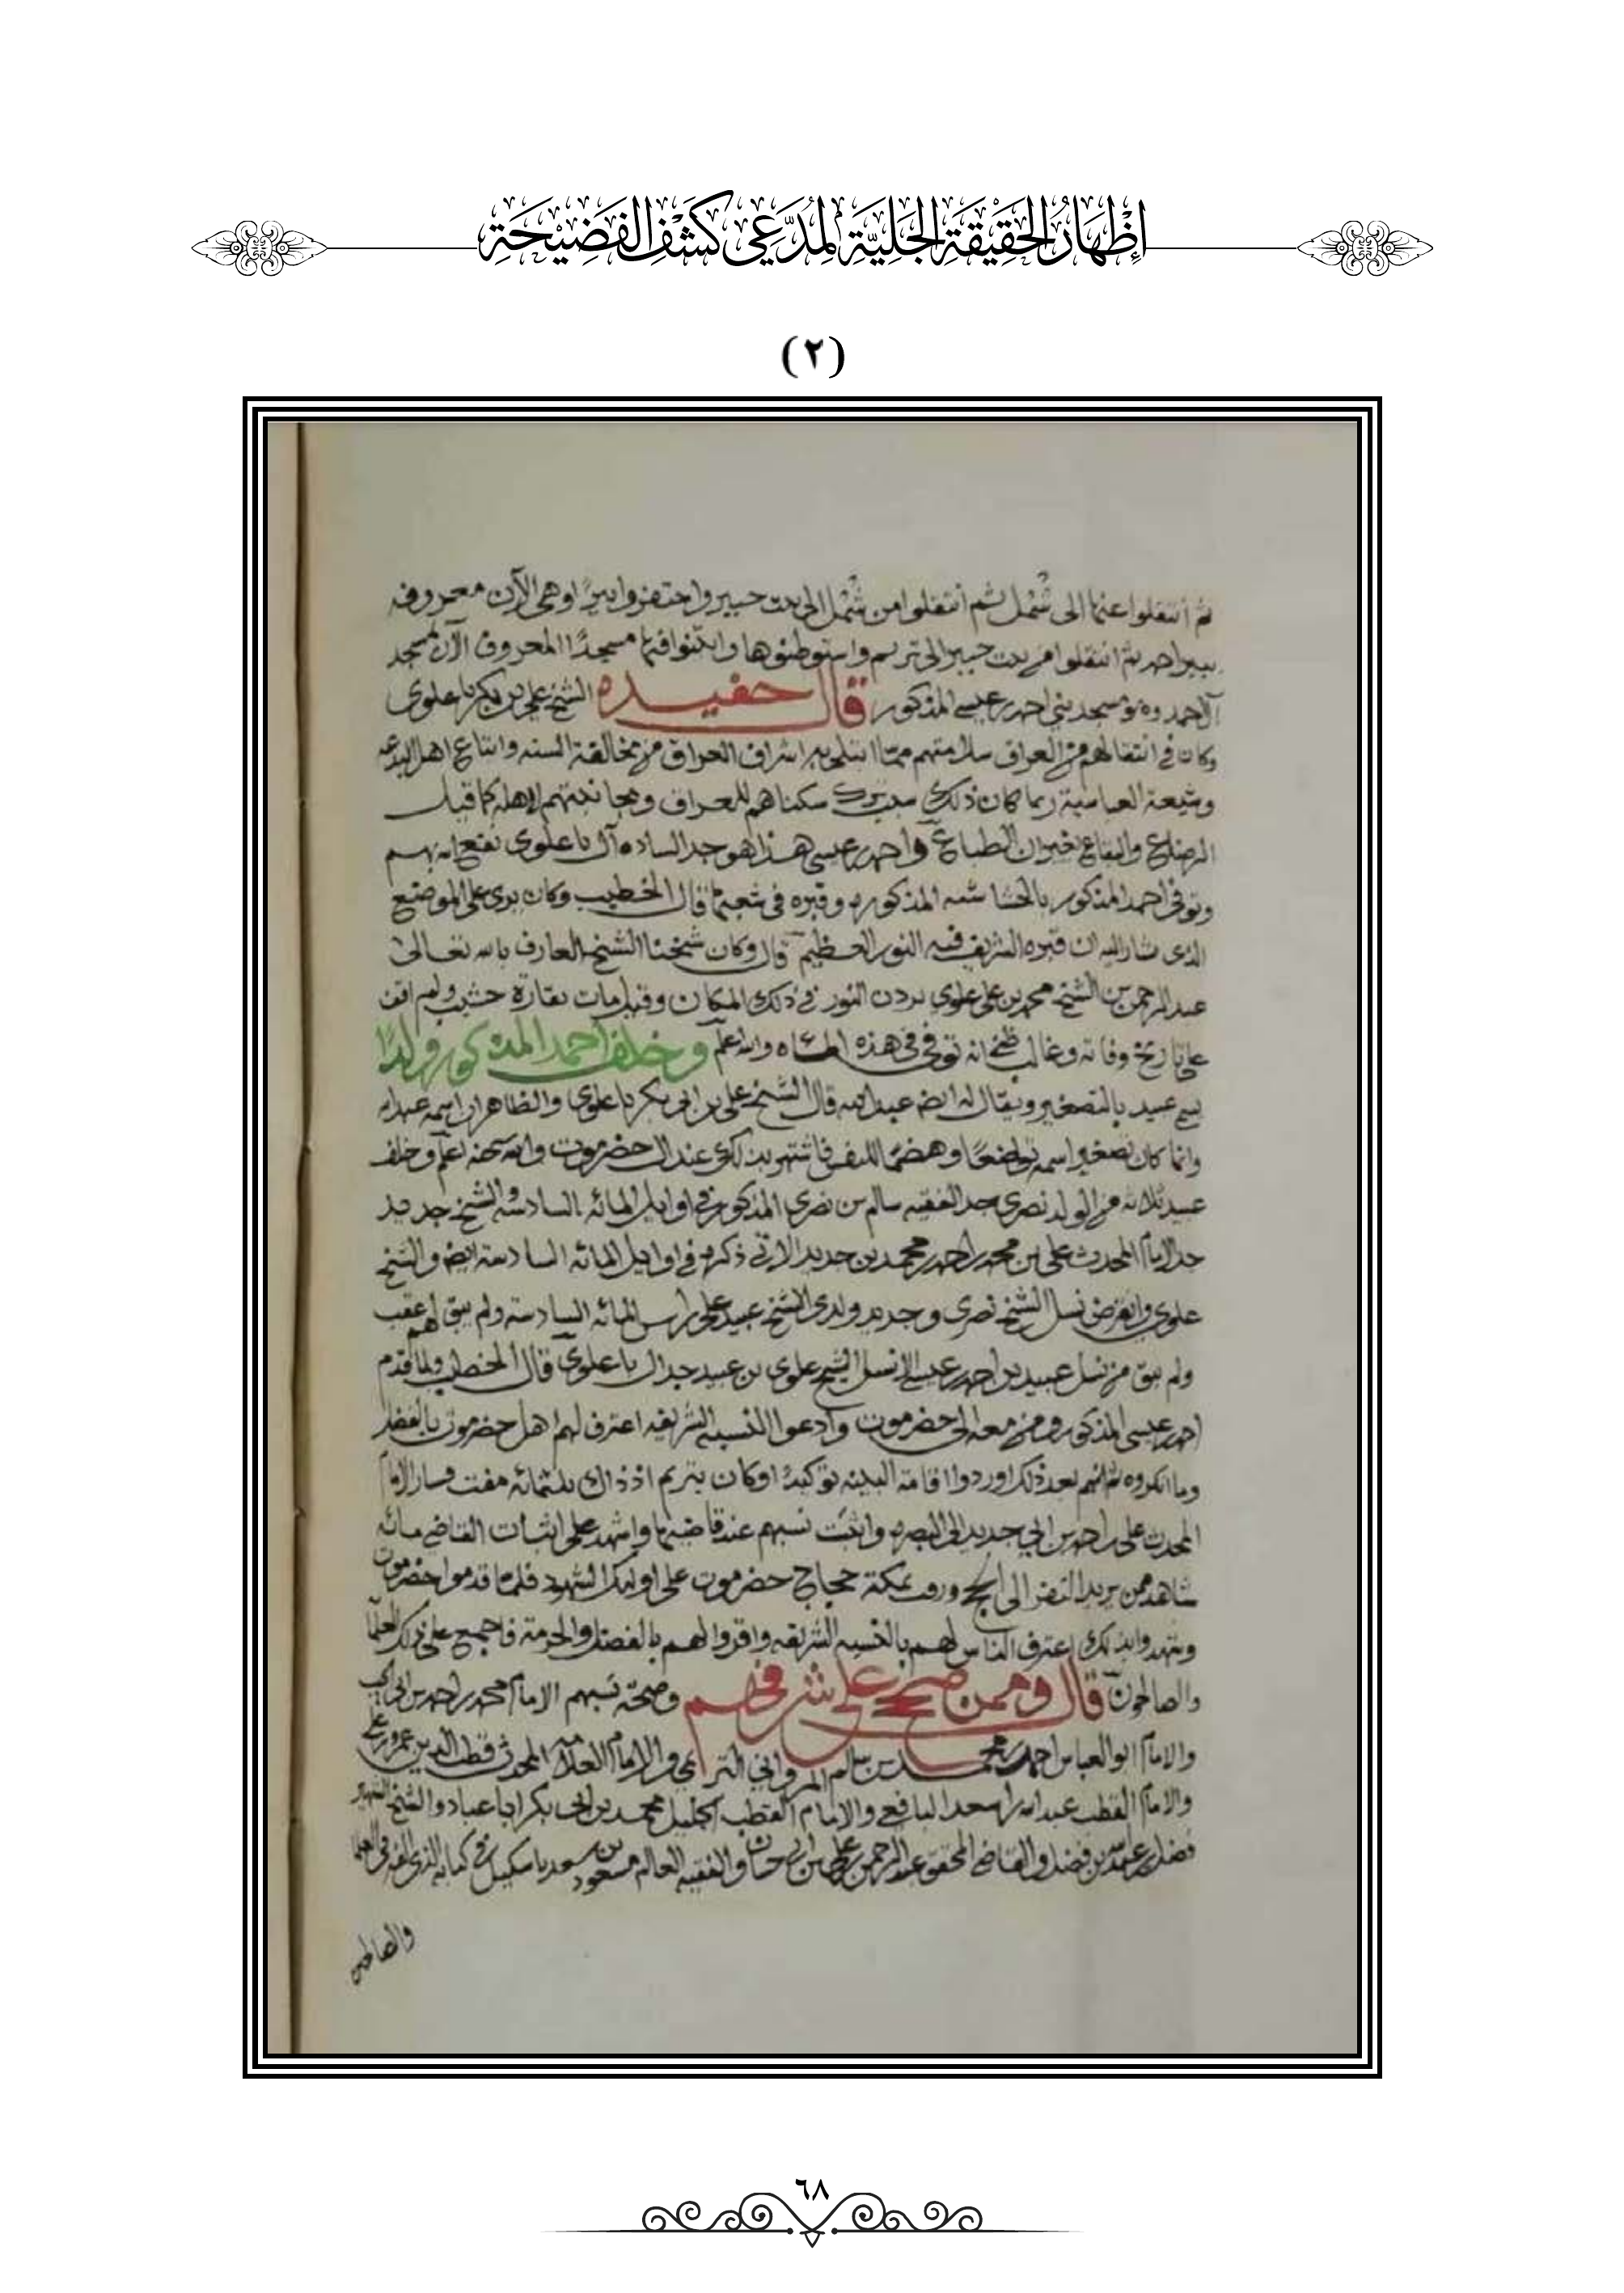 إِظْهَارُ الْحَقِيْقَةِ الْجَلِيَّةِ لِمُدَّعِي كَشْفِ الْفَضِيْحَةِ
(٢)
ثم انتقلوا عنها الى شمل ثم انتقلوا من شمل الى بيت جبير واحتفروا بيرًا وهي الآن معروفه
ببير احمد ثم انتقلوا من بيت جبير الى تريم واستوطنوها وابتنوا فيها مسجدًا المعروف الآن بمسجد
آل احمد وهو مسجد بني احمد بن عيسى المذكور قال حفيده الشيخ علي بن بكر باعلوي
وكان في انتقالهم من العراق سلامتهم مما ابتلي به اشراف العراق من مخالفة السنه واتباع اهل البدعه
وشيعة العباسية ربما كان ذلك سكناهم للعراق ومجانبتهم لاهله كما قيل
الرضاع والبقاع يغيران الطباع واحمد بن عيسى هذا هو جد الساده آل باعلوي نفع الله بهم
وتوفي احمد المذكور بالحساسه المذكوره وقبره في شعبها قال الخطيب وكان يرى على الموضع
الذي يشار اليه ان قبره الشريف فيه النور العظيم قال وكان شيخنا الشيخ العارف بالله تعالى
عبد الرحمن بن الشيخ محمد بن علي علوي النور في ذلك المكان ولم اقف
على تاريخ وفاته وغالب ظني انه توفي في هذه المئاه والله اعلم وخلف احمد المذكور ولدًا
يسمى عبيد بالتصغير ويقال له ايضا عبد الله قال الشيخ علي بن ابي بكر باعلوي والظاهر ان اسمه عبد الله
وانما كان تصغير اسمه تواضعًا وهضمًا للنفس فاشتهر بذلك عند آل حضرموت والله سبحانه اعلم وخلف
عبيد ثلاثه من الولد بصري جد الفقيه سالم بن بصري المذكور في اوايل المائه السادسه والشيخ جديد
جد الامام المحدث علي بن محمد بن احمد بن محمد بن جديد الاتي ذكره في اوايل المائه السادسه ايضا والشيخ
علوي وانقرض نسل الشيخ بصري وجديد ولدي الشيخ عبيد على راس المائه السادسه ولم يبق لهم عقب
ولم يبق من نسل عبيد بن احمد بن عيسى الا نسل الشيخ علوي بن عبيد جد ال باعلوي قال الخطيب ولما قدم
احمد بن عيسى المذكور ومن معه الى حضرموت وادعوا النسبه الشريفه اعترف لهم اهل حضرموت بالفضل
وما انكروه ثم انهم بعد ذلك ارادوا اقامة البينه توكيدًا وكان بتريم اذ ذاك ثلثمائه مفت فسار الامام
المحدث علي بن احمد بن ابي جديد الى البصره واثبت نسبهم عند قاضيها واشهد على اثبات القاضي مائه
شاهد ممن يريد السفر الى الحج ورقب بمكة حجاج حضرموت على اولئك الشهود فلما قدموا حضرموت
وشهدوا بذلك اعترف الناس لهم بالنسبه الشريفه واقروا لهم بالفضل والحرمة فاجمع على ذلك العلما
والصالحون قال وممن صحح على شرفهم وصحة نسبهم الامام محمد بن احمد بن ابي الحب
والامام ابو العباس احمد بن محمد بن سالم المرواني التريمي والامام العلامه المحدث قطب الدين عمر بن علي
والامام القطب عبد الله بن اسعد اليافعي والامام القطب الجليل محمد بن ابي بكر باعباد والشيخ الشهير
فضل بن عبد الله بن فضل والقاضي المحقق عبد الرحمن بن علي بن حسان والفقيه العالم مسعود بن سعد باشكيل في كتابه الذي الفه في العلما
والصالحين
٦٨